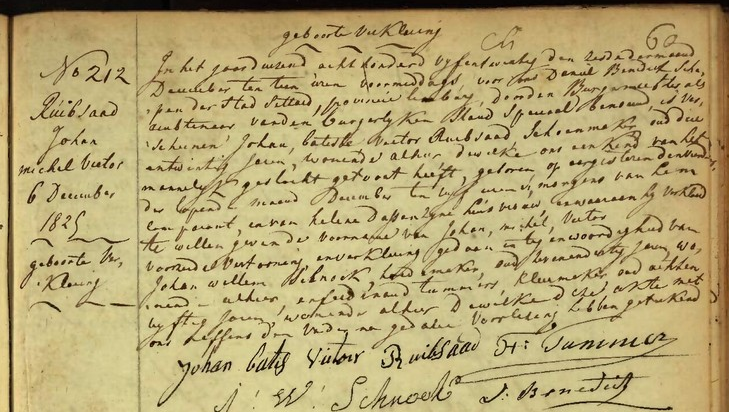 geboorte verklaring
60
No 212
Ruibsaad
Johan
michel Victor
6 December
1825
geboorte Ver,
Klaring
In het jaar duizend acht honderd vyfentwintig den zesden der maand
December ten tien uren voormiddags, voor ons Daniel Benedick Sche,
pen der stad Sittard, provincie Limburg, door den Burgemeester als
ambtenaar van den burgerlyken Stand Speciaal benoemd, is ver,
schenen Johan, batiste Victor Ruibsaad Schoenmaker oud drie
entwintig Jaren, wonende alhier dewelke ons een kind van het
mannelyk geslacht getoont heeft, geboren op eergisteren den vierden
der lopende maand December ten vyf uren 's morgens van hem
Comparant, en van helene Dassen zyne huisvrouw en waeraan hy verklaard
te willen geven de voornamen van Johan, michel, Victor
voorzeide Vertooning en verklaring gedaan in tegenwoordigheid van
Johan willem Schnock, hoedemaker, oud Jaren, wo,
nende alhier, en ferdinand tummers, kleermaker oud achten
vyftig Jaren, wonende alhier Dewelke deze akte met
ons neffens den na gedane Voorlezing hebben getekend
Johan batis Victoir Ruibsaad F: Tummer
J: W: Schnock D: Benedick